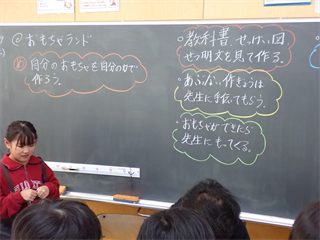 @おもちゃランド
め 自分のおもちゃを自分の力で
作ろう。
・教科書、せっけい図
せつ明文を見て作る。
・あぶない作ぎょうは
先生に手伝ってもらう。
・おもちゃができたら
先生にもってくる。